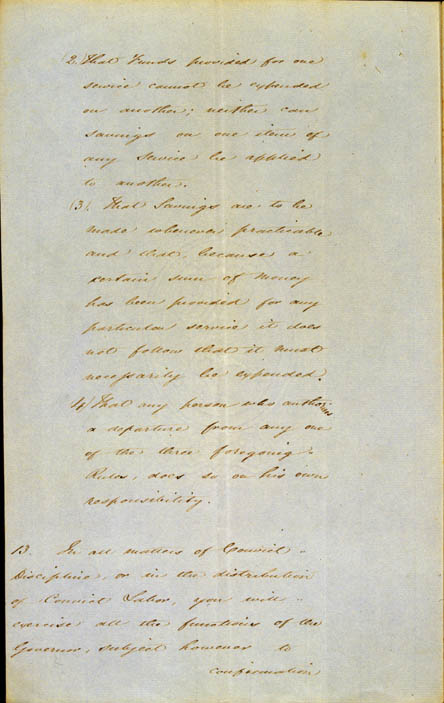 (2. That Funds provided for one
service cannot be expended
on another; neither can
savings on one item of
any service be applied
to another.
(3). That Savings are to be
made whenever practicable
and that, because a
certain sum of Money
has been provided for any
particular service it does
not follow that it must
necessarily be expended.
4) That any person who authorizes
a departure from any one
of the three foregoing
Rules, does so on his own
responsibility.
13. In all matters of Convict
Discipline, or in the distribution
of Convict Labor, you will
exercise all the functions of the
Governor, subject however to
confirmation